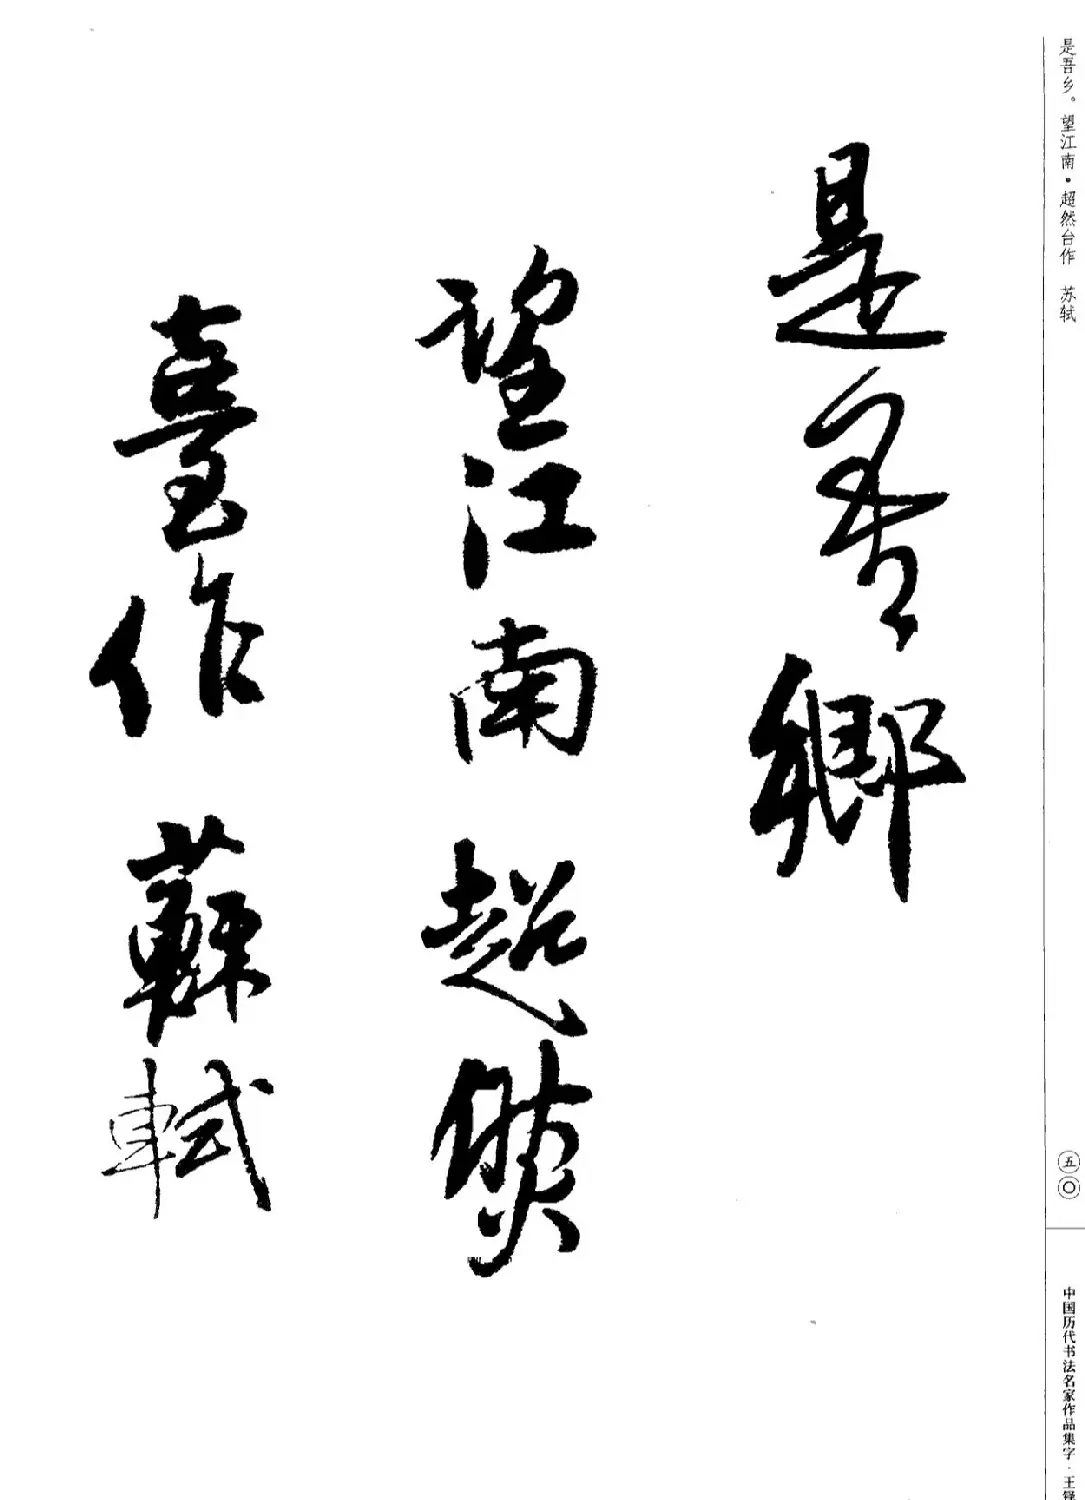 是吾乡。望江南·超然台作　苏轼
是吾鄉
望江南超然
臺作 蘇軾
五〇
中国历代书法名家作品集字·王铎